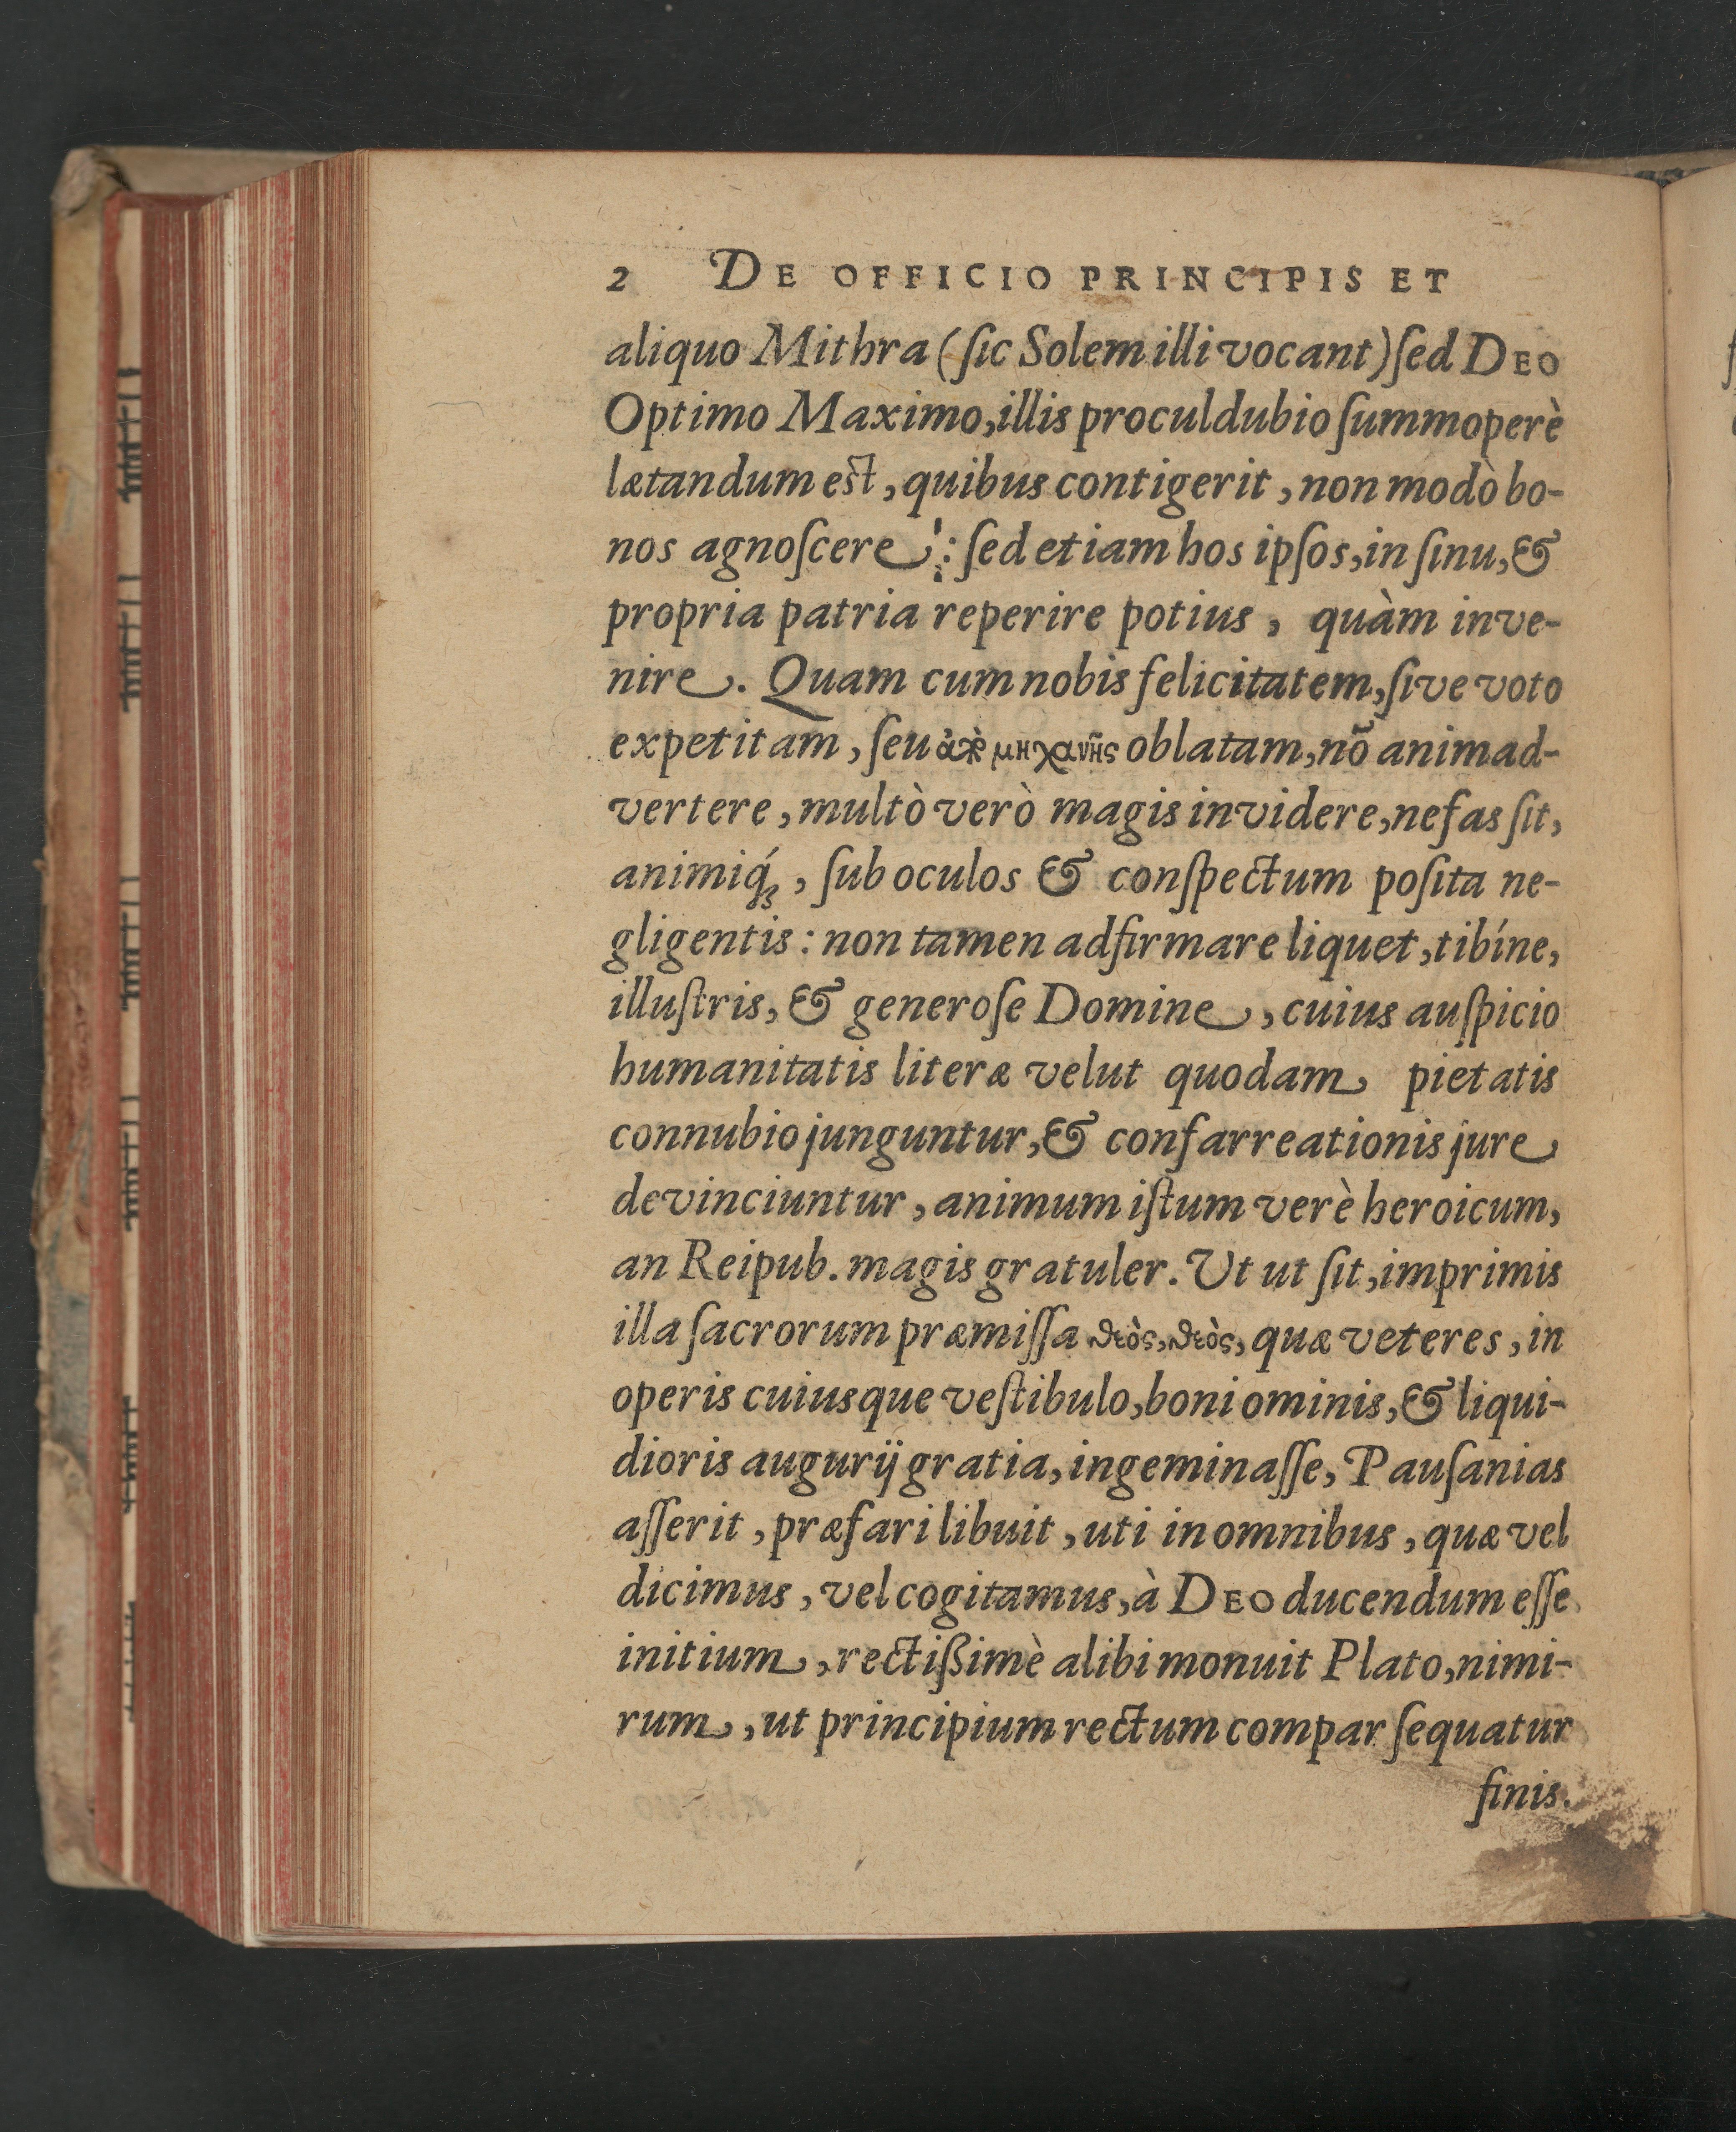 2 DE OFFICIO PRINCIPIS ET
aliquo Mithra (ſic Solem illi vocant) ſed DEO
Optimo Maximo, illis proculdubio ſummoperè
lætandum est, quibus contigerit, non modò bo-
nos agnoſcere: ſed etiam hos ipſos, in ſinu, &
propria patria reperire potius, quàm inve-
nire. Quam cum nobis felicitatem, ſive voto
expetitam, ſeu μηχανῆς oblatam, nõ animad-
vertere, multò verò magis invidere, nefas ſit,
animiq́ꝫ, ſub oculos & conſpectum poſita ne-
gligentis: non tamen adfirmare liquet, tibíne,
illuſtris, & generoſe Domine, cuius auſpicio
humanitatis literæ velut quodam pietatis
connubio junguntur, & confarreationis jure
devinciuntur, animum iſtum verè heroicum,
an Reipub. magis gratuler. Ut ut ſit, imprimis
illa ſacrorum præmiſſa θεὸς, θεὸς, quæ veteres, in
operis cuiusque veſtibulo, boni ominis, & liqui-
dioris augurij gratia, ingeminaſſe, Pauſanias
aſſerit, præfari libuit, uti in omnibus, quæ vel
dicimus, vel cogitamus, à DEO ducendum eſſe
initium, rectißimè alibi monuit Plato, nimi-
rum, ut principium rectum compar ſequatur
finis.